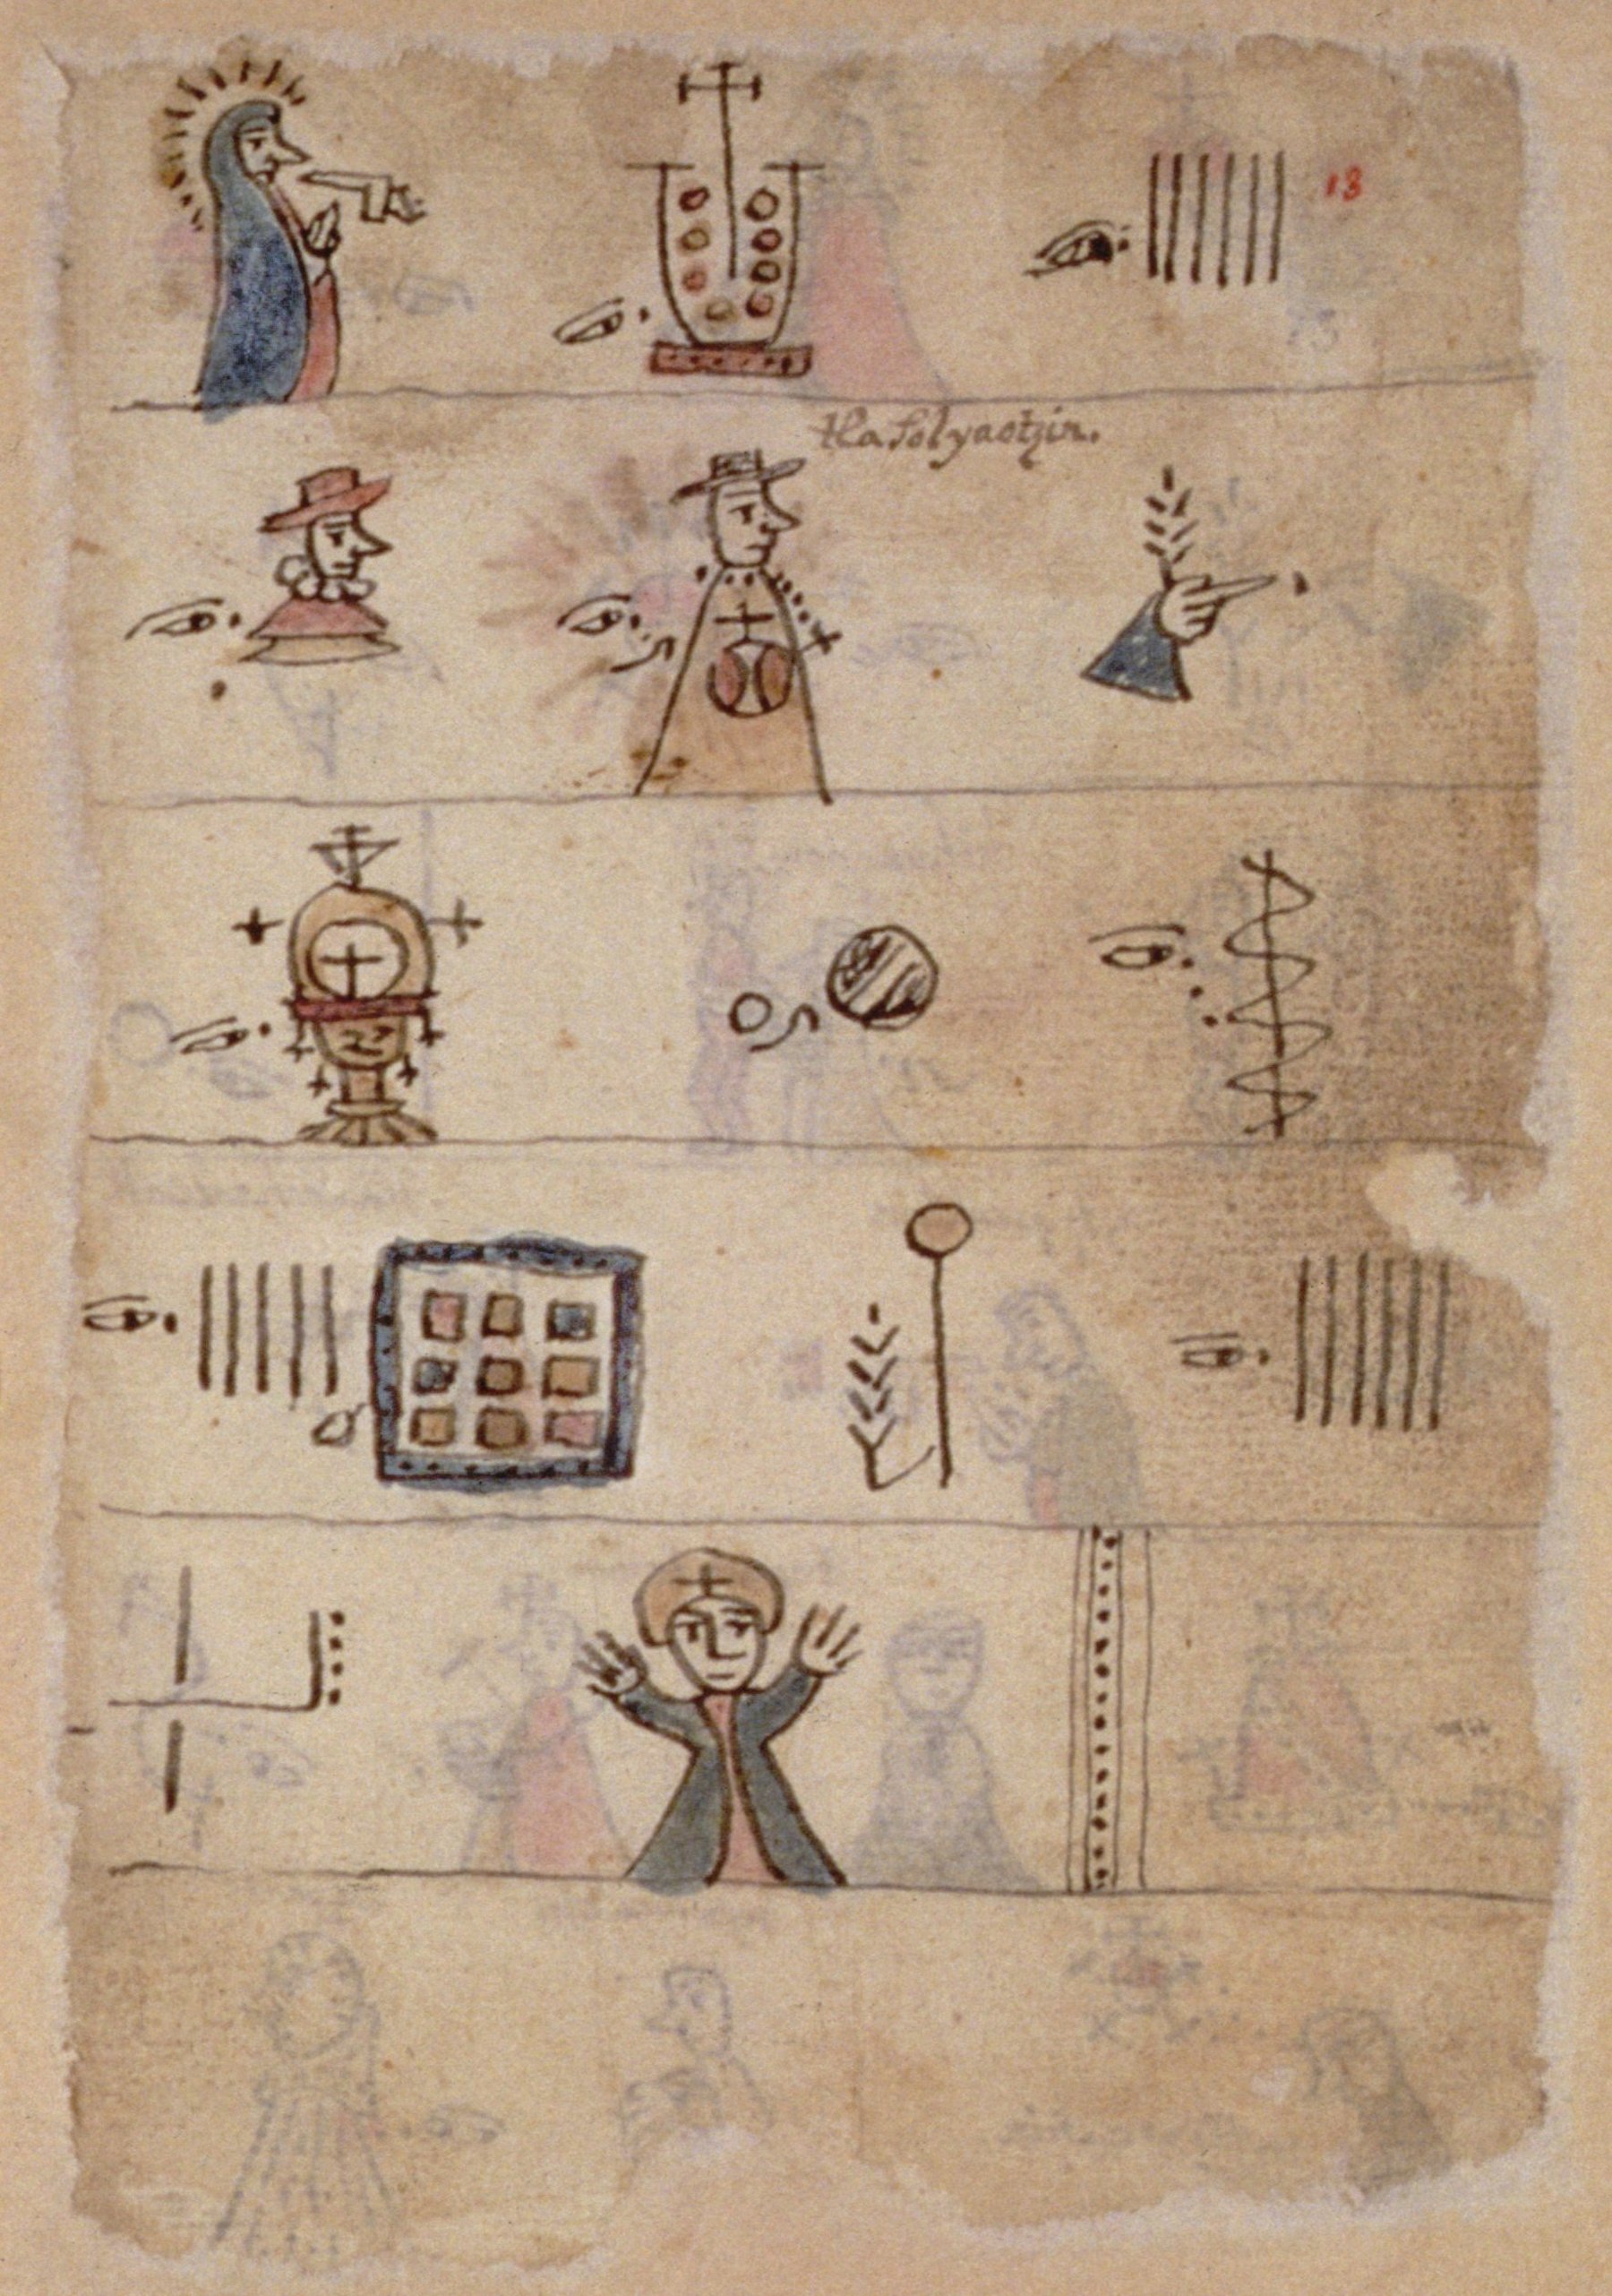 13
tlatolyaotzin.